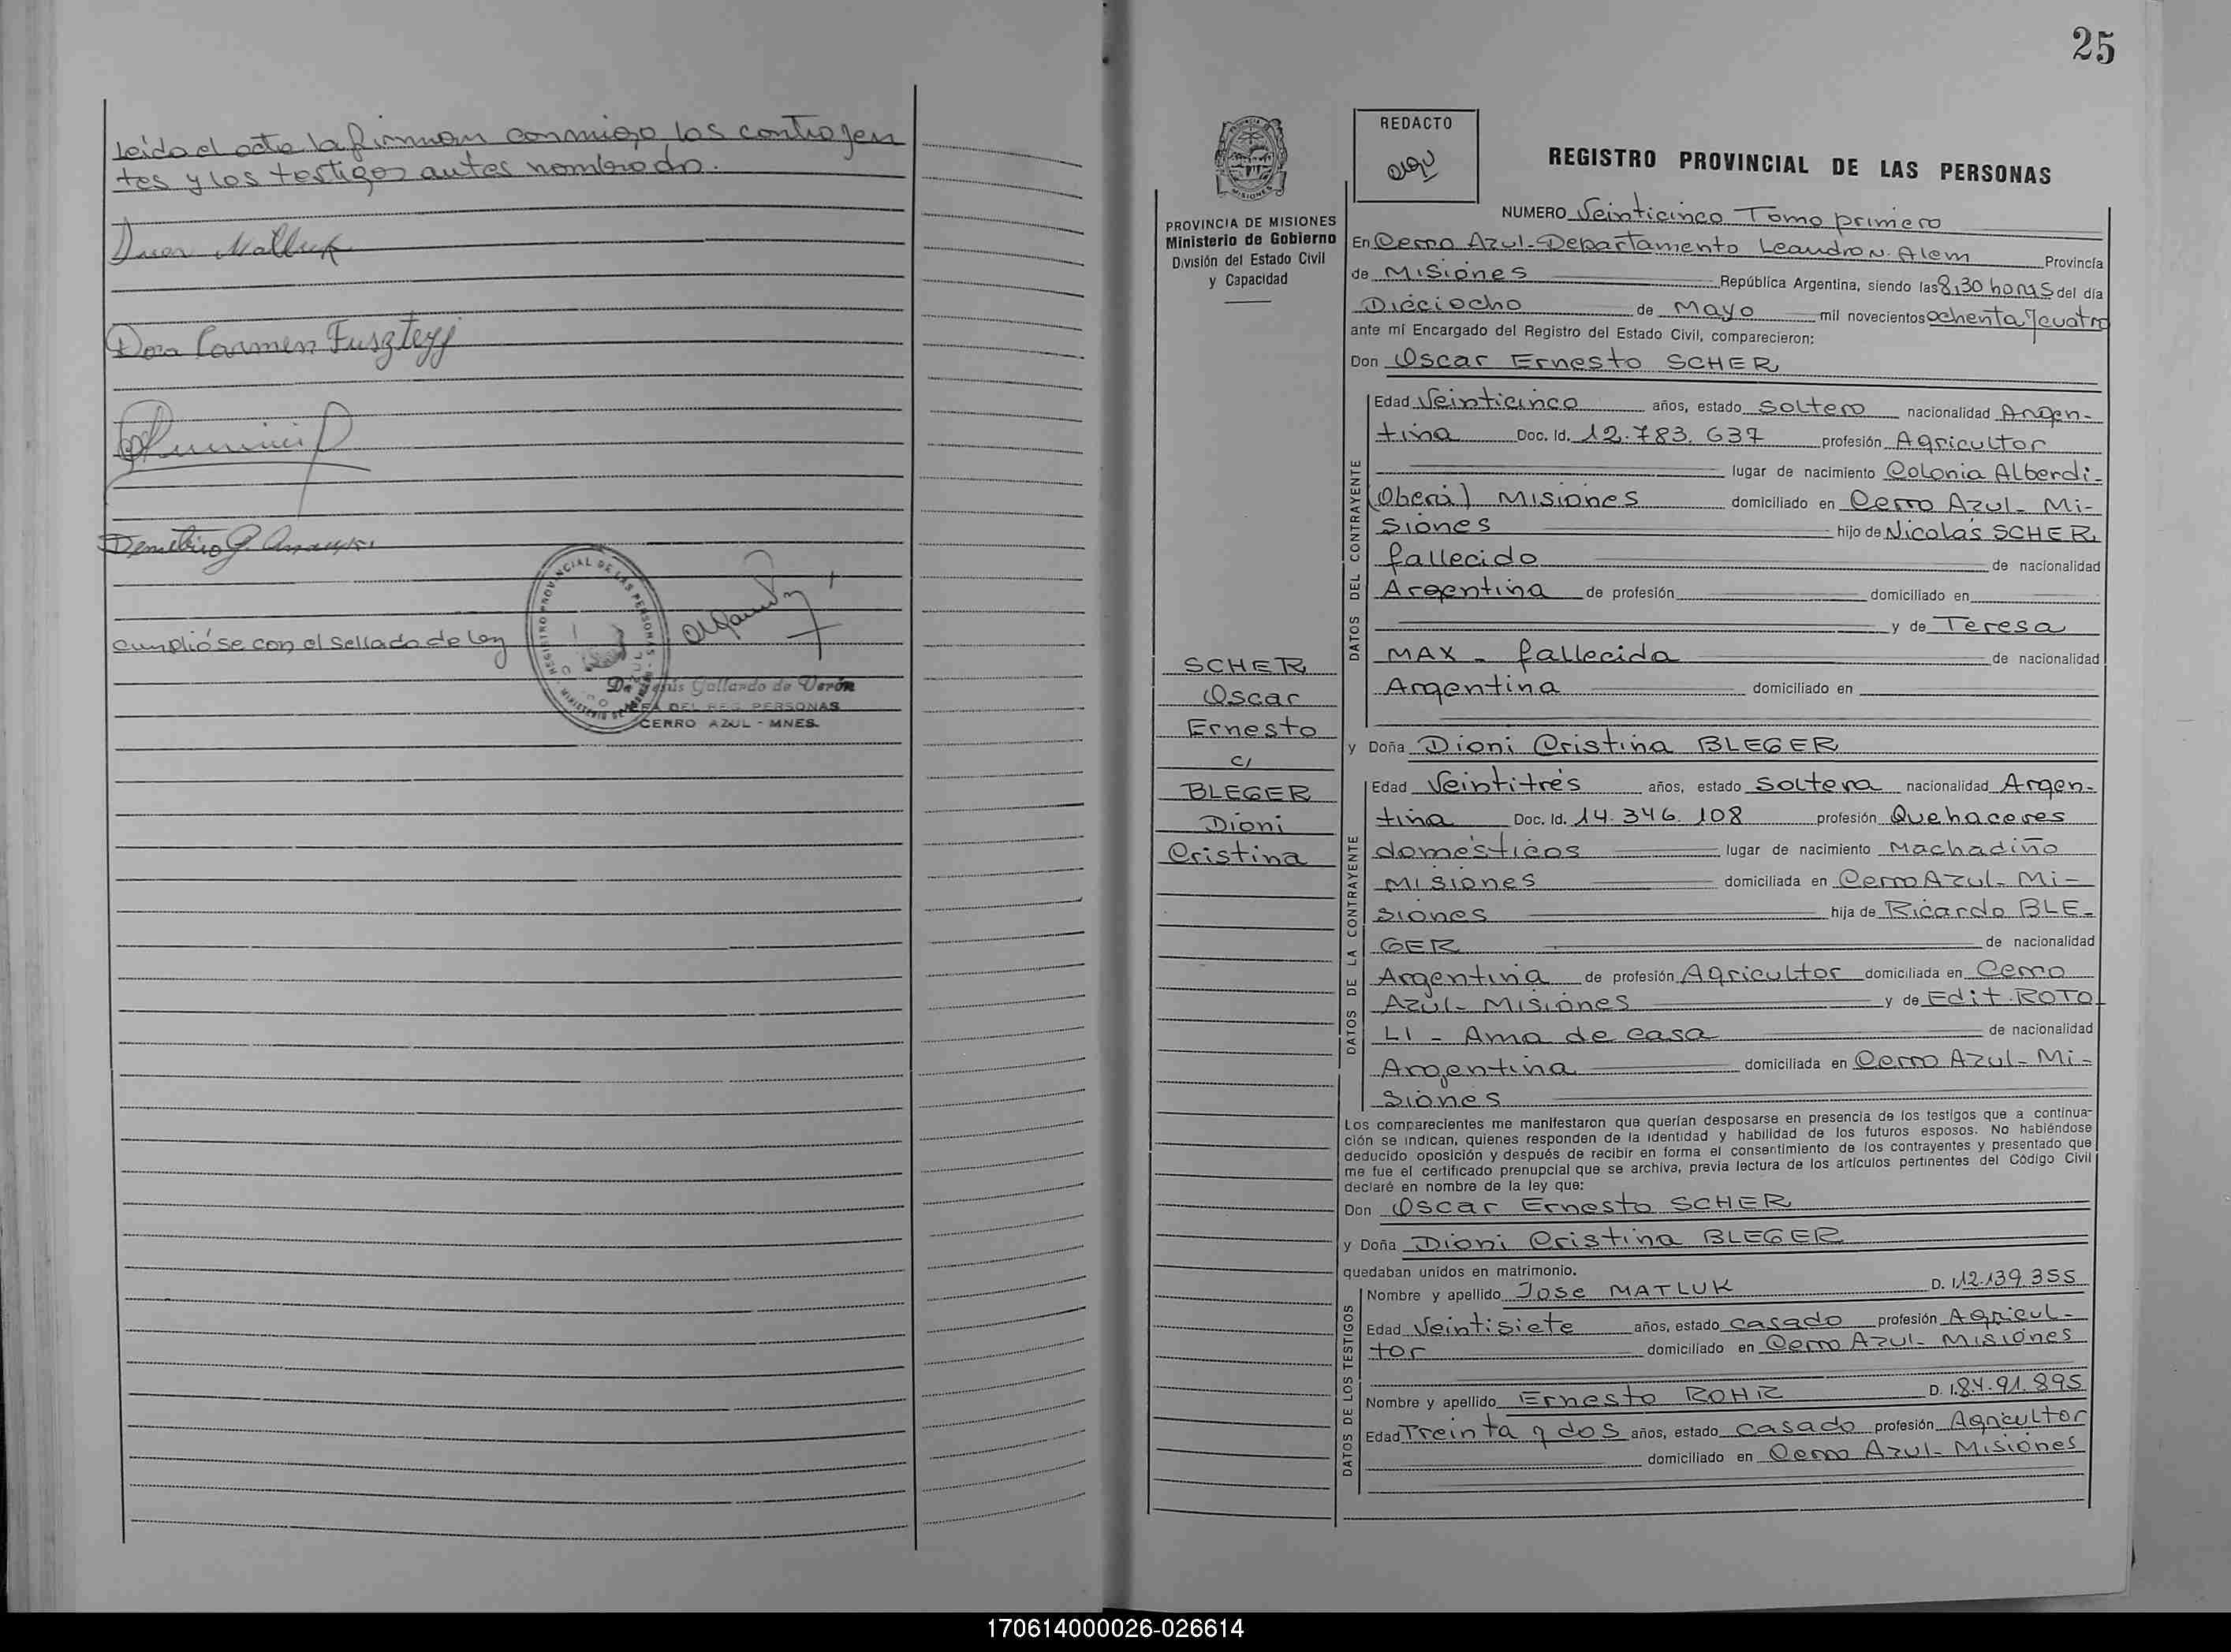 Leida el acta la firman conmigo los contrajen
tes y los testigos antes nombrado.
Juan Matluk
Carmen Fuszteyj
Demetrio G.
Cumplióse con el sellado de ley
REGISTRO PROVINCIAL DE LAS PERSONAS
Gallardo de Verón
DEL REG. PERSONAS
CERRO AZUL - MNES.
25
REDACTO
REGISTRO PROVINCIAL DE LAS PERSONAS
MISIONES
PROVINCIA DE MISIONES
Ministerio de Gobierno
División del Estado Civil
y Capacidad
SCHER
Oscar
Ernesto
c/
BLEGER
Dioni
Cristina
NUMERO Veinticinco Tomo primero
En Cerro Azul-Departamento Leandro N. Alem Provincia
de Misiones República Argentina, siendo las 8,30 horas del día
Dieciocho de Mayo mil novecientos ochenta y cuatro
ante mí Encargado del Registro del Estado Civil, comparecieron:
Don Oscar Ernesto SCHER
DATOS DEL CONTRAYENTE
Edad Veinticinco años, estado soltero nacionalidad Argen-
tina Doc. Id. 12.783.637 profesión Agricultor
lugar de nacimiento Colonia Alberdi-
(Oberá) Misiones domiciliado en Cerro Azul- Mi-
siones hijo de Nicolás SCHER
fallecido de nacionalidad
Argentina de profesión domiciliado en
y de Teresa
MAX - fallecida de nacionalidad
Argentina domiciliado en
y Doña Dioni Cristina BLEGER
DATOS DE LA CONTRAYENTE
Edad Veintitrés años, estado soltera nacionalidad Argen-
tina Doc. Id. 14.346.108 profesión Quehaceres
domésticos lugar de nacimiento Machadiño
Misiones domiciliada en Cerro Azul- Mi-
siones hija de Ricardo BLE-
GER de nacionalidad
Argentina de profesión Agricultor domiciliada en Cerro
Azul- Misiones y de Edit ROTO
LI - Ama de casa de nacionalidad
Argentina domiciliada en Cerro Azul- Mi-
siones
Los comparecientes me manifestaron que querían desposarse en presencia de los testigos que a continua-
ción se indican, quienes responden de la identidad y habilidad de los futuros esposos. No habiéndose
deducido oposición y después de recibir en forma el consentimiento de los contrayentes y presentado que
me fue el certificado prenupcial que se archiva, previa lectura de los artículos pertinentes del Código Civil
declaré en nombre de la ley que:
Don Oscar Ernesto SCHER
y Doña Dioni Cristina BLEGER
quedaban unidos en matrimonio.
DATOS DE LOS TESTIGOS
Nombre y apellido Jose MATLUK D. I. 12.139.355
Edad Veintisiete años, estado casado profesión Agricul-
tor domiciliado en Cerro Azul- Misiones
Nombre y apellido Ernesto ROHR D. I. 84.91.895
Edad Treinta y dos años, estado casado profesión Agricultor
domiciliado en Cerro Azul- Misiones
170614000026-026614